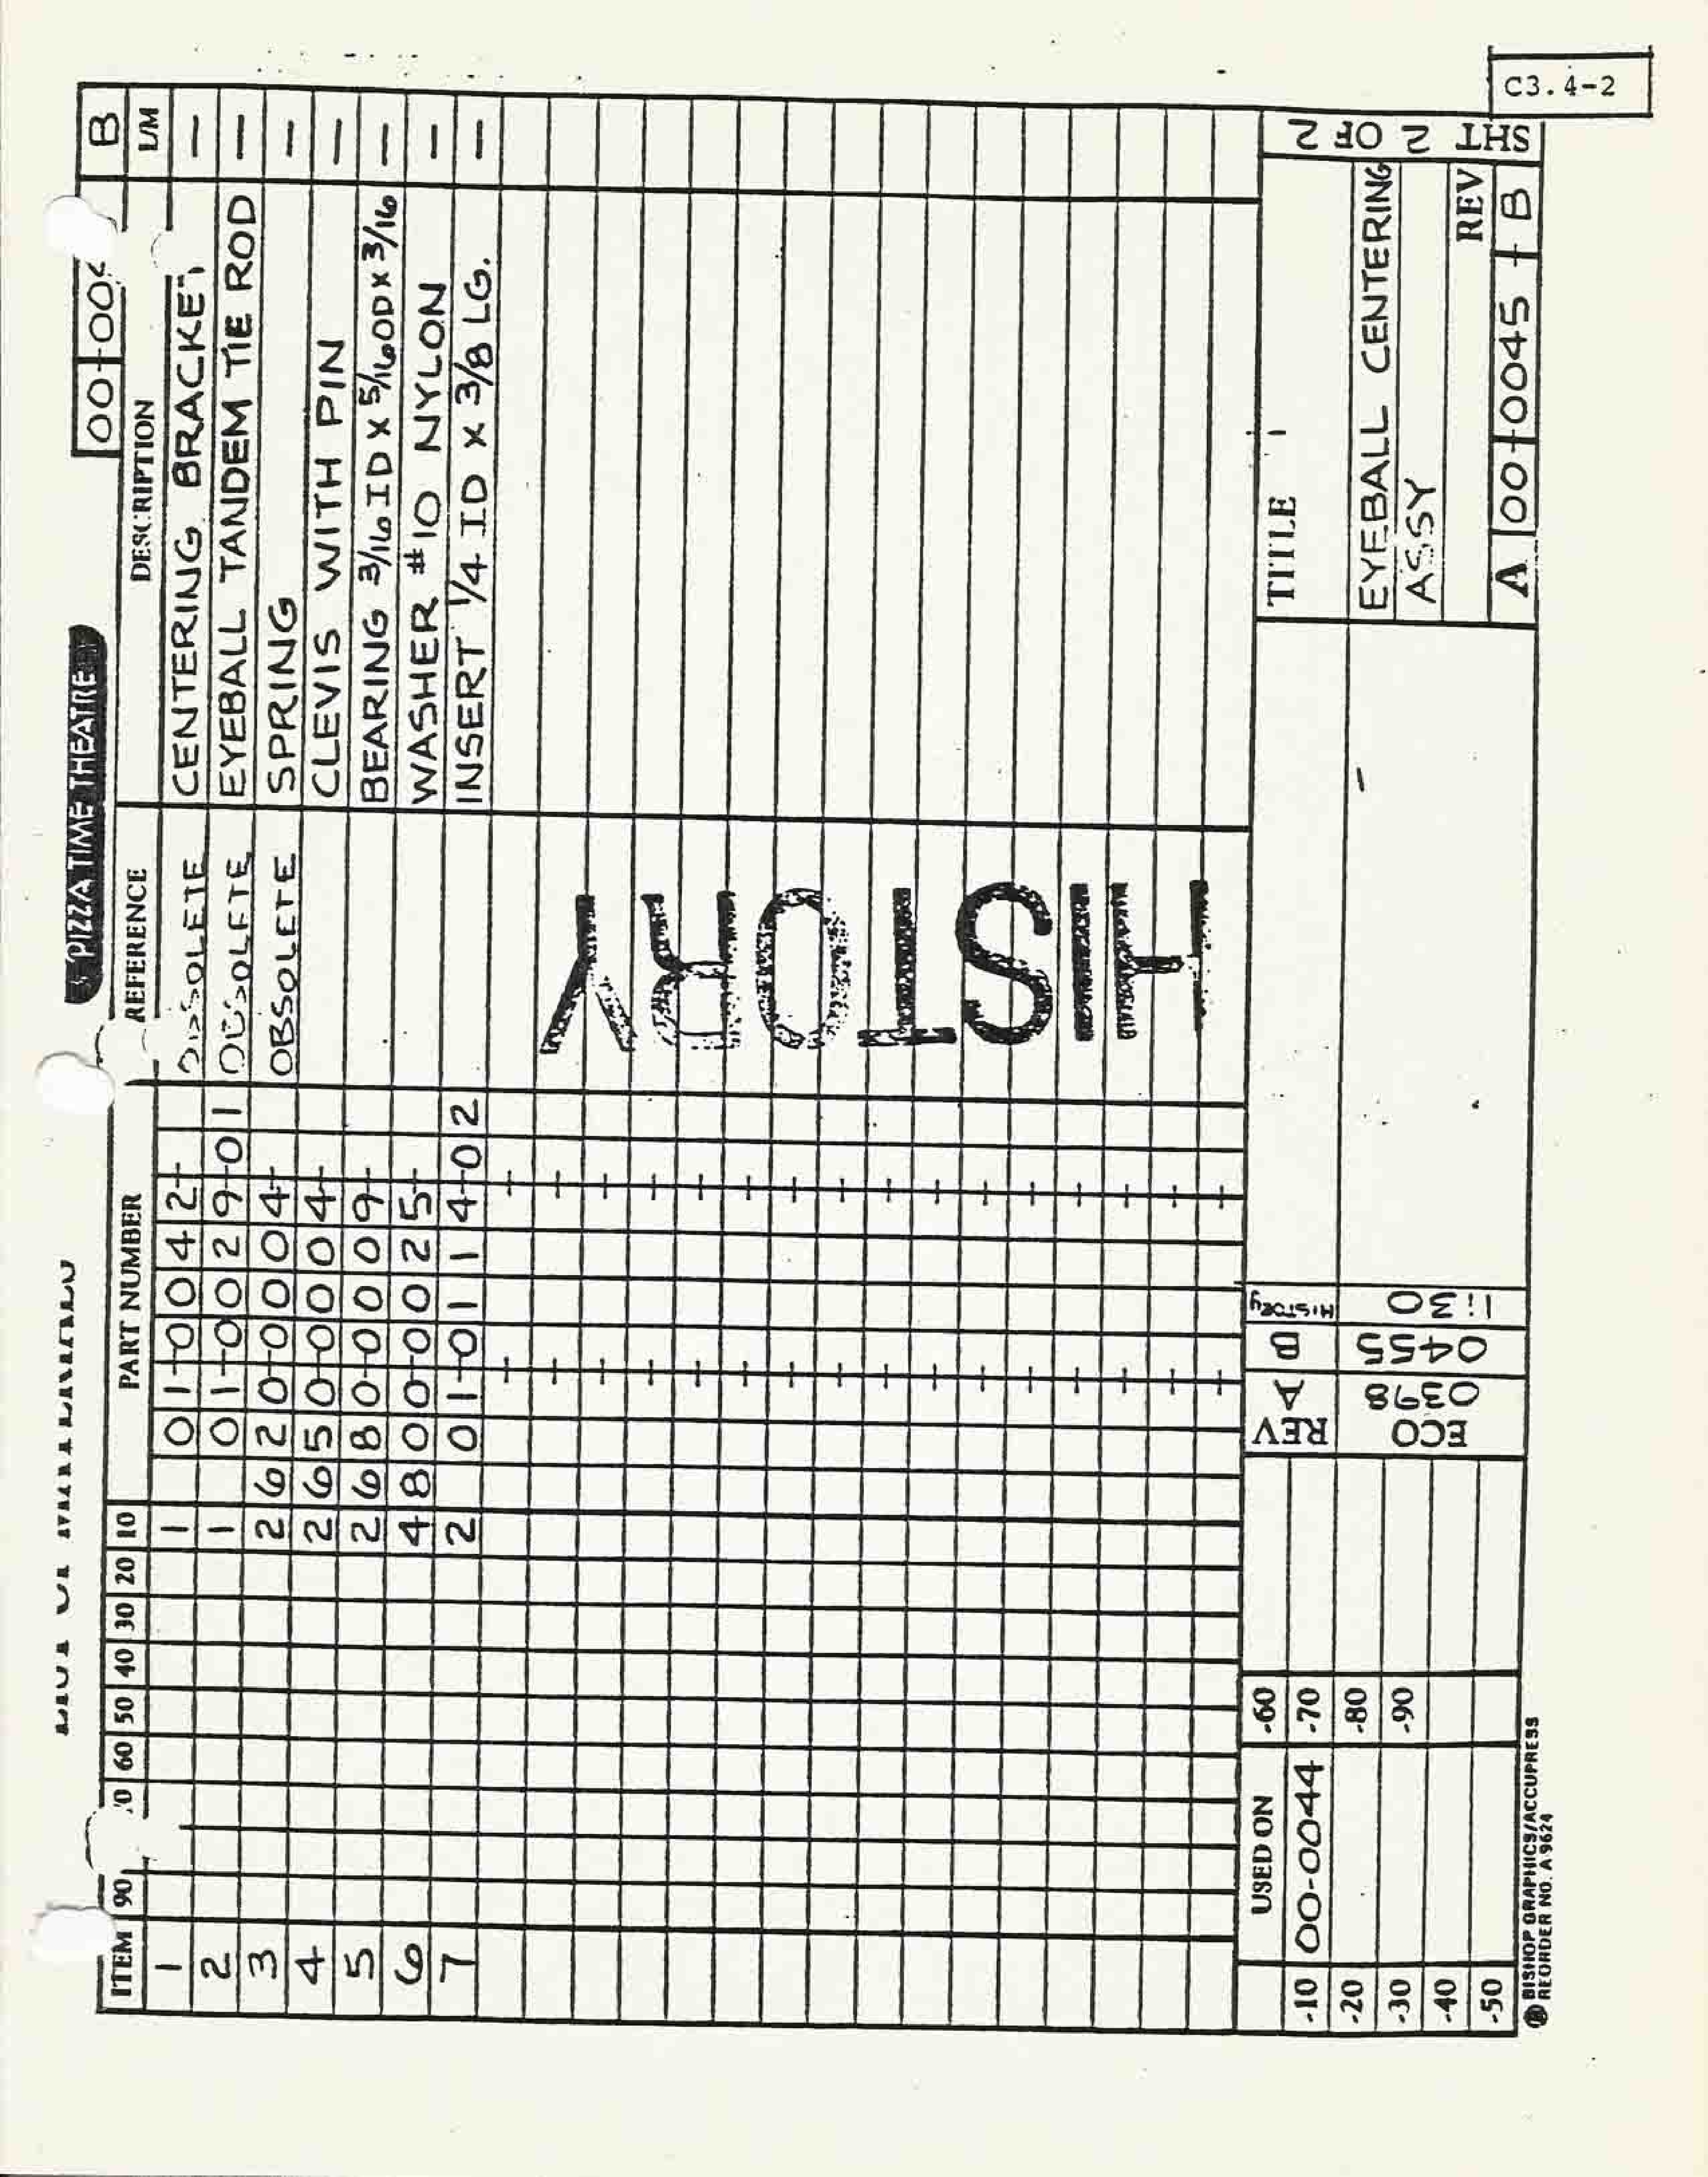 C3.4-2
PIZZA TIME THEATRE
00-00 B
ITEM 90 60 50 40 30 20 10 PART NUMBER REFERENCE DESCRIPTION L/M
1 1 01-0042- OBSOLETE CENTERING BRACKET —
2 1 01-0029-01 OBSOLETE EYEBALL TANDEM TIE ROD —
3 2 620-0004- OBSOLETE SPRING —
4 2 650-0004- CLEVIS WITH PIN —
5 2 680-0009- BEARING 3/16 ID X 5/16 OD X 3/16 —
6 4 800-0025- WASHER #10 NYLON —
7 2 01-0114-02 INSERT 1/4 ID X 3/8 LG. —
HISTORY
USED ON
-10 00-0044 -60
-20 -70
-30 -80
-40 -90
-50
REV A B HISTORY
ECO 0398 0455 1130
TITLE
EYEBALL CENTERING
ASSY
REV
A 00-0045- B
SHT 2 OF 2
BISHOP GRAPHICS/ACCUPRESS
REORDER NO. A 9624